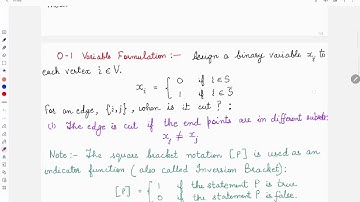 0-1 Variable Formulation :- Assign a binary variable xᵢ to
each vertex i ∈ V.
xᵢ = { 0 if i ∈ S
1 if i ∈ S̄
For an edge, {i,j}, when is it cut ? :
(i) The edge is cut if the end points are in different subsets
xᵢ ≠ xⱼ
Note :- The square bracket notation [P] is used as an
indicator function (also called Inversion Bracket) :
[P] = { 1 if the statement P is true
0 if the statement P is false.